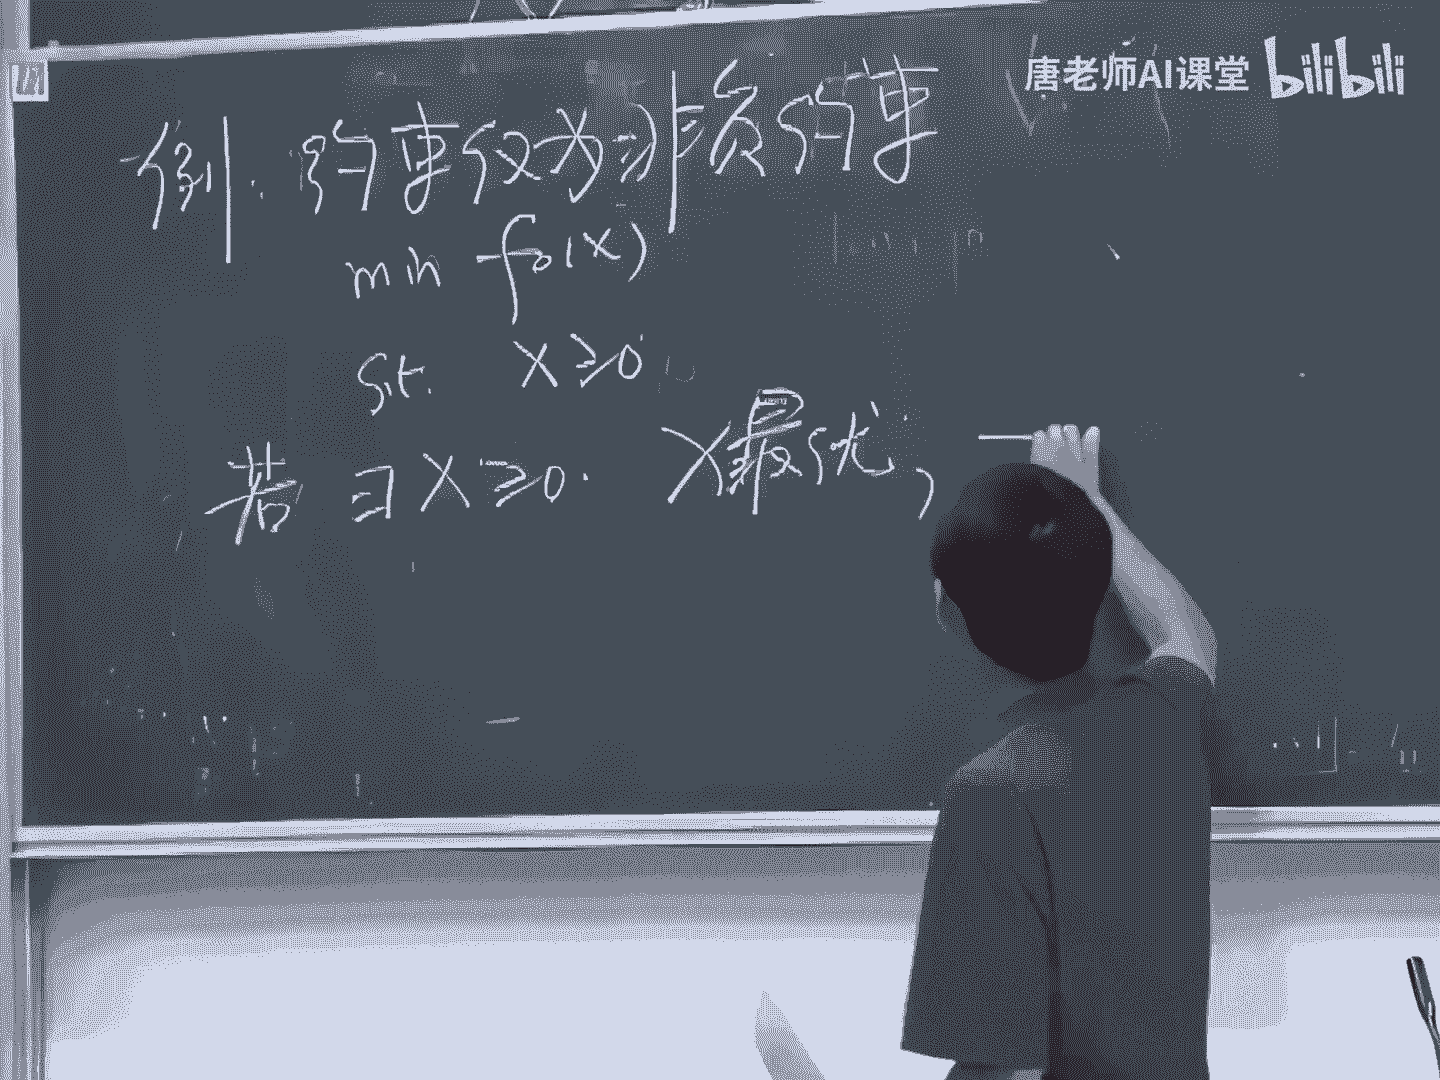 唐老师AI课堂 bilibili
例. 约束仅为非负约束
min f₀(x)
s.t. x≥0
若 ∃x≥0. x最优,